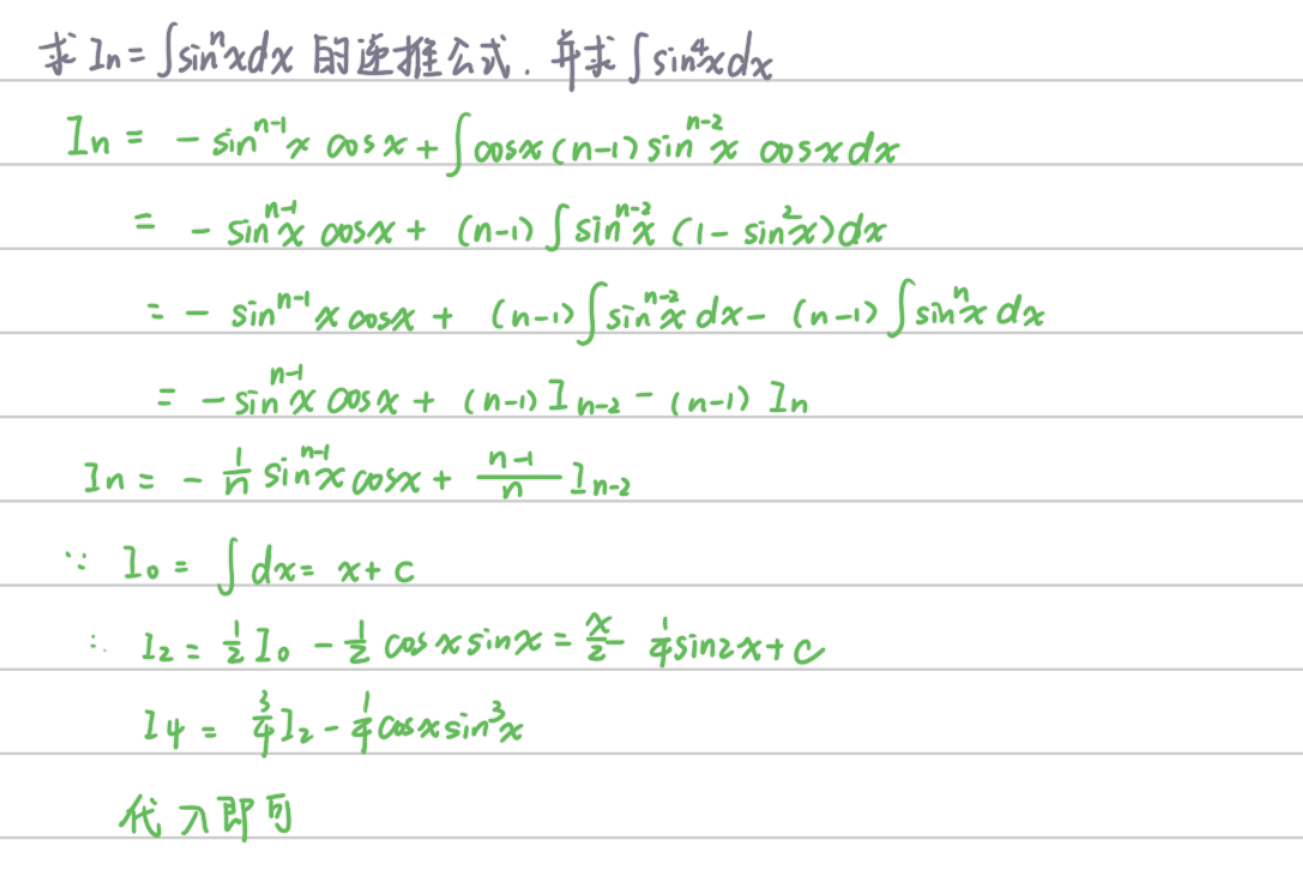 求 Iₙ = ∫sinⁿxdx 的递推公式. 并求 ∫sin⁴xdx
Iₙ = - sinⁿ⁻¹x cosx + ∫cosx(n-1)sinⁿ⁻²x cosxdx
= - sinⁿ⁻¹x cosx + (n-1)∫sinⁿ⁻²x (1- sin²x)dx
= - sinⁿ⁻¹x cosx + (n-1)∫sinⁿ⁻²x dx - (n-1)∫sinⁿx dx
= - sinⁿ⁻¹x cosx + (n-1)Iₙ₋₂ - (n-1) Iₙ
Iₙ = - 1/n sinⁿ⁻¹x cosx + (n-1)/n Iₙ₋₂
∵ I₀ = ∫dx = x + c
∴ I₂ = 1/2 I₀ - 1/2 cosxsinx = x/2 - 1/4 sin2x + c
I₄ = 3/4 I₂ - 1/4 cosxsin³x
代入即可